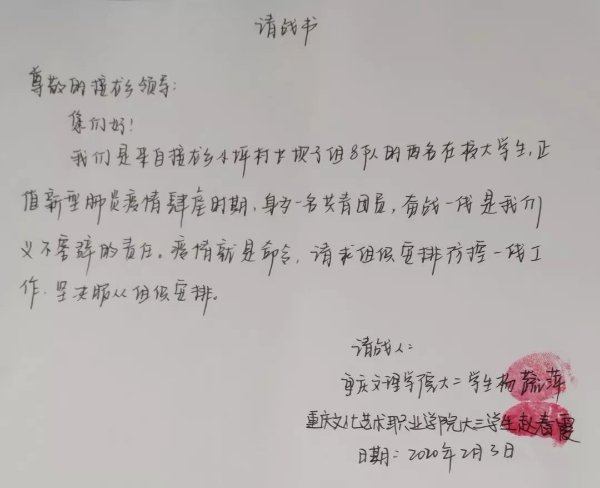 请战书
尊敬的擅龙乡领导:
您们好!
我们是来自擅龙乡小坪村大坝子组8队的两名在校大学生,正
值新型肺炎疫情肆虐时期,身为一名共青团员,奋战一线是我们
义不容辞的责任。疫情就是命令,请求组织安排防控一线工
作.坚决服从组织安排。
请战人:
重庆文理学院大二学生杨 萍
重庆文化艺术职业学院大三学生赵春霞
日期:2020年2月3日